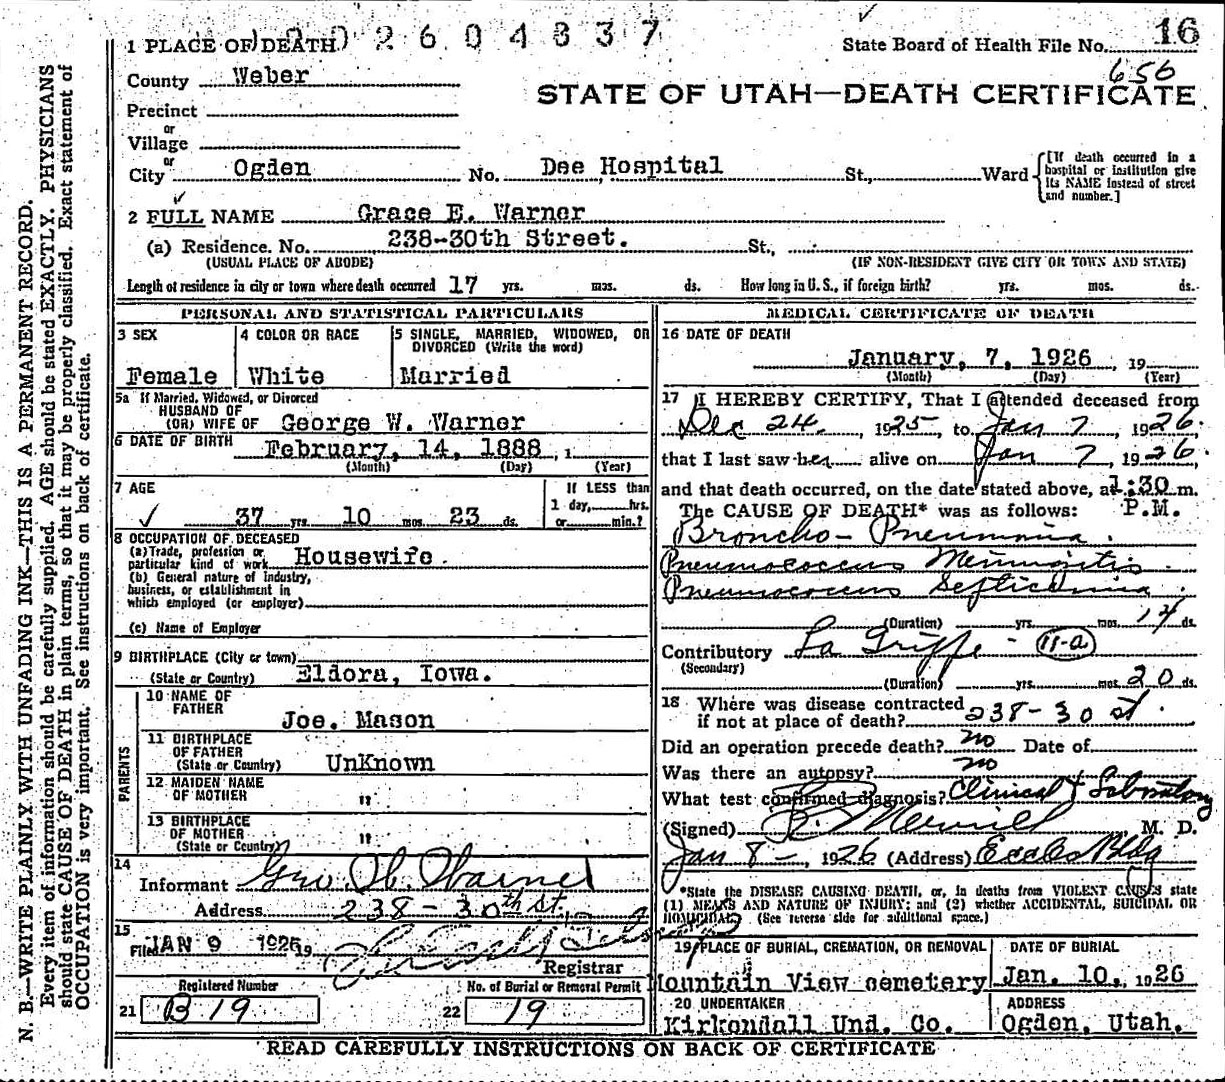 2604337
State Board of Health File No. 16
656
1 PLACE OF DEATH
County Weber
STATE OF UTAH—DEATH CERTIFICATE
Precinct
or
Village
or
City Ogden No. Dee Hospital St., Ward
[If death occurred in a hospital or institution give its NAME instead of street and number.]
2 FULL NAME Grace E. Warner
(a) Residence. No. 238-30th Street. St.,
(USUAL PLACE OF ABODE) (IF NON-RESIDENT GIVE CITY OR TOWN AND STATE)
Length of residence in city or town where death occurred 17 yrs. mos. ds. How long in U. S., if foreign birth? yrs. mos. ds.
PERSONAL AND STATISTICAL PARTICULARS
3 SEX
Female
4 COLOR OR RACE
White
5 SINGLE, MARRIED, WIDOWED, OR
DIVORCED (Write the word)
Married
5a If Married, Widowed, or Divorced
HUSBAND OF
(OR) WIFE OF George W. Warner
6 DATE OF BIRTH February, 14, 1888 , 1
(Month) (Day) (Year)
7 AGE
If LESS than
1 day, hrs.
or min.?
37 yrs. 10 mos. 23 ds.
8 OCCUPATION OF DECEASED
(a) Trade, profession or
particular kind of work Housewife.
(b) General nature of industry,
business, or establishment in
which employed (or employer)
(c) Name of Employer
9 BIRTHPLACE (City or town)
(State or Country) Eldora, Iowa.
PARENTS
10 NAME OF
FATHER
Joe. Mason
11 BIRTHPLACE
OF FATHER
(State or Country) UnKnown
12 MAIDEN NAME
OF MOTHER "
13 BIRTHPLACE
OF MOTHER
(State or Country) "
14
Informant Geo. W. Warner
Address 238-30th St.,
15
Filed JAN 9 1926 19
Registrar
Registered Number
21 B 19
No. of Burial or Removal Permit
22 19
MEDICAL CERTIFICATE OF DEATH
16 DATE OF DEATH
January, 7, 1926 , 19
(Month) (Day) (Year)
17 I HEREBY CERTIFY, That I attended deceased from
Dec 24, 1925, to Jan 7, 1926.
that I last saw her alive on Jan 7, 1926.
and that death occurred, on the date stated above, at 1:30 m.
The CAUSE OF DEATH* was as follows: P.M.
Broncho-Pneumonia.
Pneumococcus Meningitis.
Pneumococcus Septicemia.
(Duration) yrs. mos. 14 ds.
Contributory La Grippe - 11-a
(Secondary)
(Duration) yrs. mos. 20 ds.
18 Where was disease contracted
if not at place of death? 238-30 st.
Did an operation precede death? no Date of
Was there an autopsy? no
What test confirmed diagnosis? Clinical & Laboratory
(Signed) Merrill, M. D.
Jan 8-, 1926 (Address) Eccles Bldg
*State the DISEASE CAUSING DEATH, or, in deaths from VIOLENT CAUSES state
(1) MEANS AND NATURE OF INJURY; and (2) whether ACCIDENTAL, SUICIDAL OR
HOMICIDAL. (See reverse side for additional space.)
19 PLACE OF BURIAL, CREMATION, OR REMOVAL
Mountain View cemetery
DATE OF BURIAL
Jan. 10, 1926
20 UNDERTAKER
Kirkendall Und. Co.
ADDRESS
Ogden, Utah.
READ CAREFULLY INSTRUCTIONS ON BACK OF CERTIFICATE
N. B.—WRITE PLAINLY WITH UNFADING INK—THIS IS A PERMANENT RECORD.
Every item of information should be carefully supplied. AGE should be stated EXACTLY. PHYSICIANS
should state CAUSE OF DEATH in plain terms, so that it may be properly classified. Exact statement of
OCCUPATION is very important. See instructions on back of certificate.